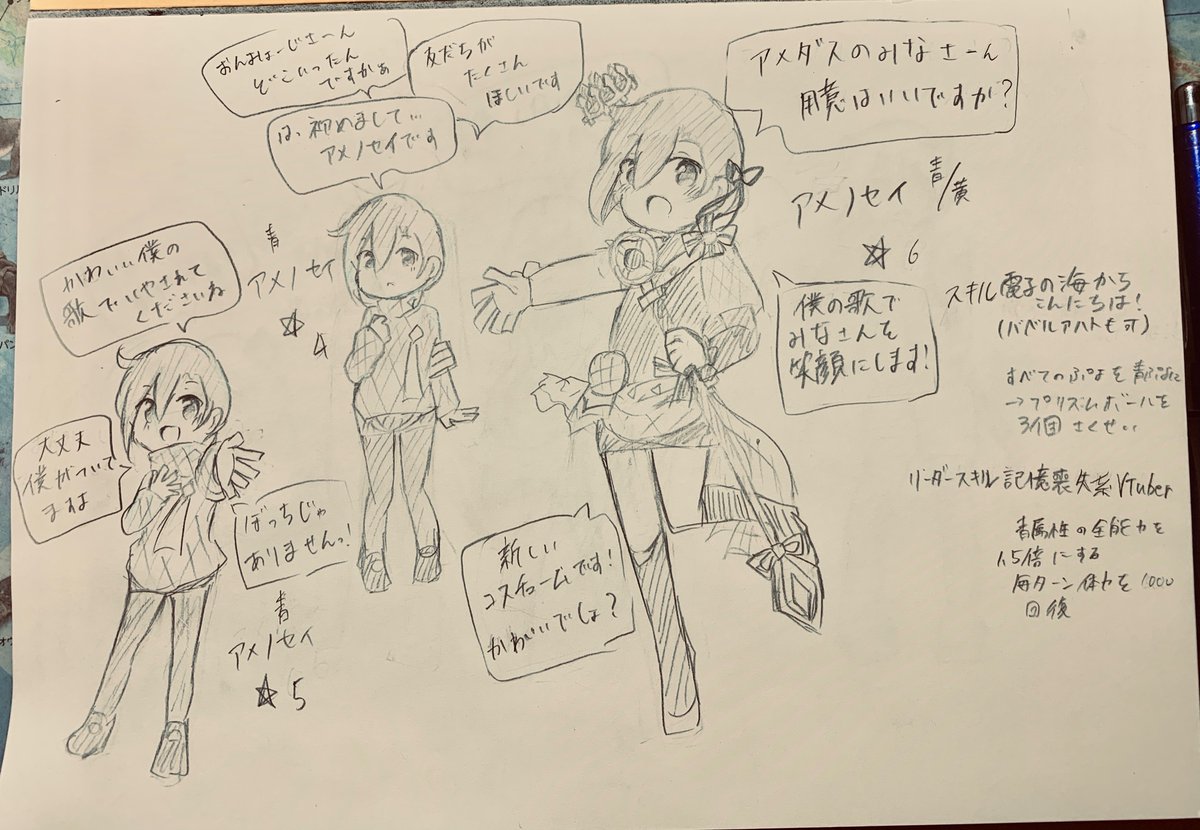 おんまほーじさーん
どこいったん
ですかぁ
友だちが
たくさん
ほしいです
は、初めまして…
アメノセイです
青
アメノセイ
☆4
かわいい僕の
歌でいやされて
くださいね
大丈夫
僕がついて
ますよ
ぼっちじゃ
ありませんっ!
青
アメノセイ
☆5
アメダスのみなさーん
用意はいいですか?
アメノセイ 青/黄
☆6
僕の歌で
みなさんを
笑顔にします!
新しい
コスチュームです!
かわいいでしょ?
スキル 電子の海から
こんにちは!
(バベルアハトも可)
すべてのぷよを青ぷよに
→プリズムボールを
3個 さくせい
リーダースキル 記憶喪失系Vtuber
青属性の全能力を
1.5倍にする
毎ターン体力を1000
回復